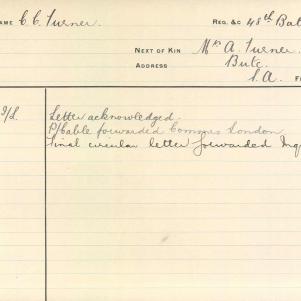 NAME C C Turner. REG. &C 48th Bat
NEXT OF KIN Mrs A. Turner
ADDRESS Bute.
S.A. F
I/L. Letter acknowledged.
P/Cable forwarded Commrs London
Final circular letter forwarded Inq